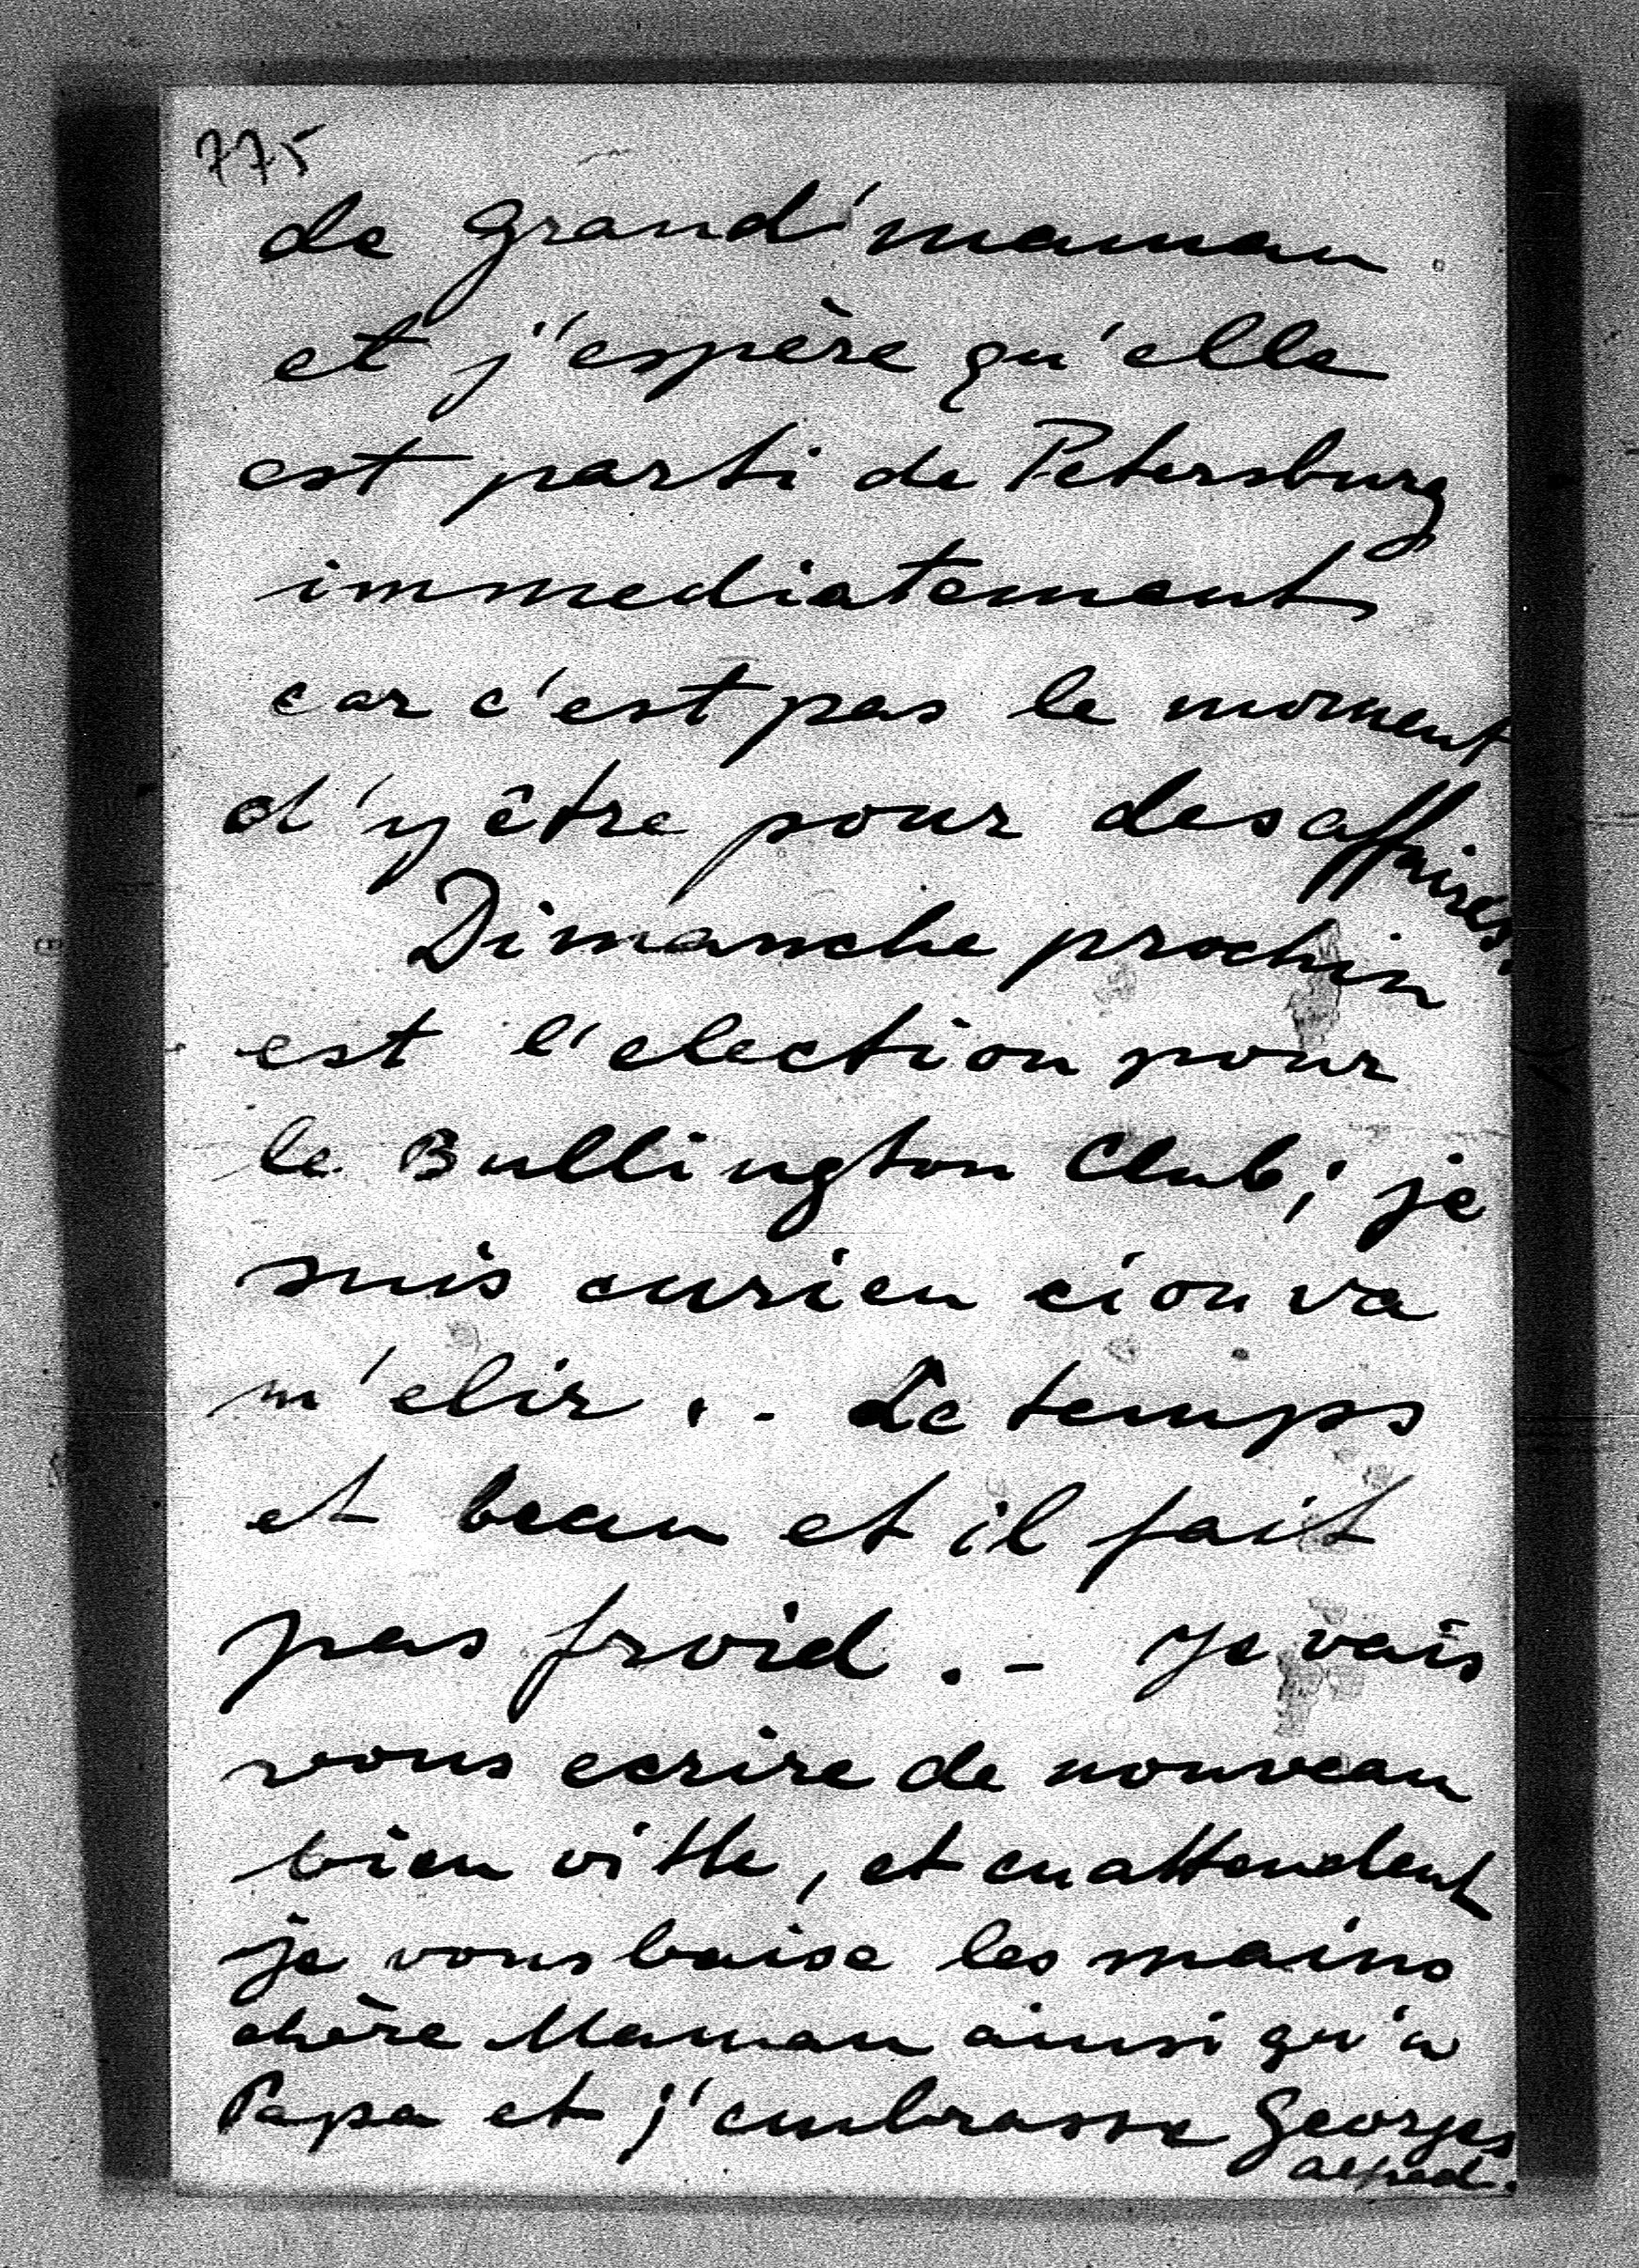 775
de grand'maman
et j'espère qu'elle
est parti de Petersburg
immediatement
car c'est pas le moment
d'y être pour des affaires.
Dimanche prochin
est l'election pour
le Bullington Club; je
suis curieu ci on va
m'elir. - Le temps
et beau et il fait
pas froid. - Je vais
vous ecrire de nouveau
bien vitte, et en attendent
je vous baise les mains
chère Maman ainsi qu'a
Papa et j'embrasse Georges
Alfred.